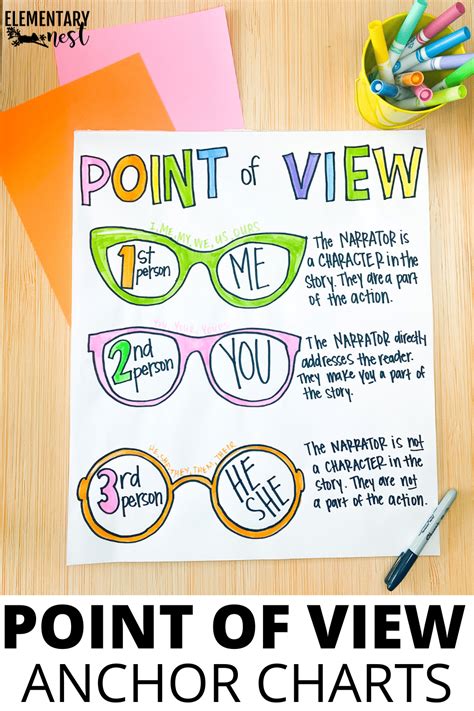 ELEMENTARY
nest
POINT of VIEW
I, ME, MY, WE, US, OURS
1st
person
ME
The NARRATOR is
a CHARACTER in the
story. They are a part
of the action.
2nd
person
YOU
The NARRATOR directly
addresses the reader.
They make you a part of
the story.
THEY, THEM, THEIR
3rd
person
HE
SHE
The NARRATOR is not
a CHARACTER in the
story. They are not
a part of the action.
POINT OF VIEW
ANCHOR CHARTS